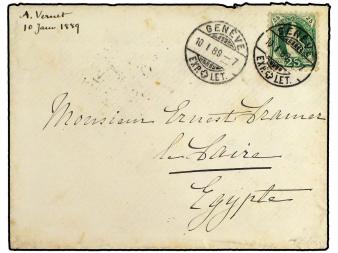 A. Vernet
10 Janv 1889
GENÈVE
10 I 89 – 7
EXP. LET.
GENÈVE
EXP. LET.
25
Monsieur Ernest Cramer
le Caire
Egypte